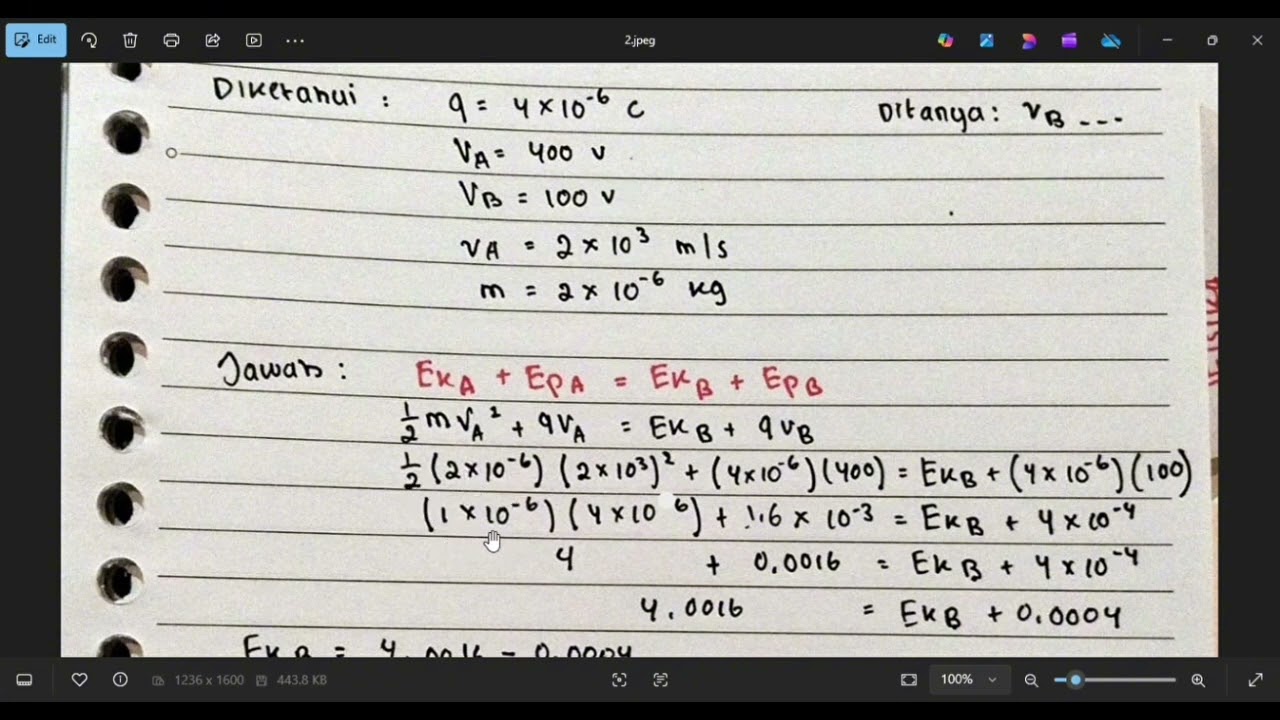 Edit
2.jpeg
Diketahui : q = 4 × 10⁻⁶ C Ditanya : vB ...
VA = 400 V
VB = 100 V
vA = 2 × 10³ m/s
m = 2 × 10⁻⁶ kg
Jawab : EKA + EPA = EKB + EPB
½ m VA² + qVA = EKB + qVB
½ (2×10⁻⁶) (2×10³)² + (4×10⁻⁶)(400) = EKB + (4×10⁻⁶)(100)
(1 × 10⁻⁶) (4 × 10 6) + 1.6 × 10⁻³ = EKB + 4×10⁻⁴
4 + 0.0016 = EKB + 4×10⁻⁴
4.0016 = EKB + 0.0004
EKB = 4.0016 - 0.0004
1236 x 1600 443.8 KB 100%